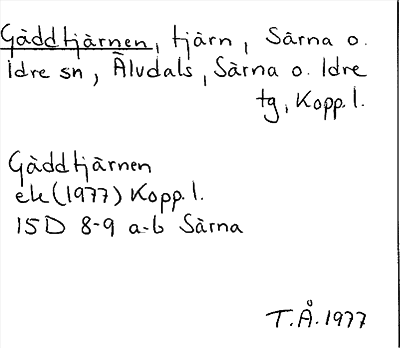 Gäddtjärnen, tjärn, Särna o.
Idre sn, Älvdals, Särna o. Idre
tg, Kopp. l.
Gäddtjärnen
ek (1977) Kopp. l.
15D 8-9 a-b Särna
T.Å. 1977